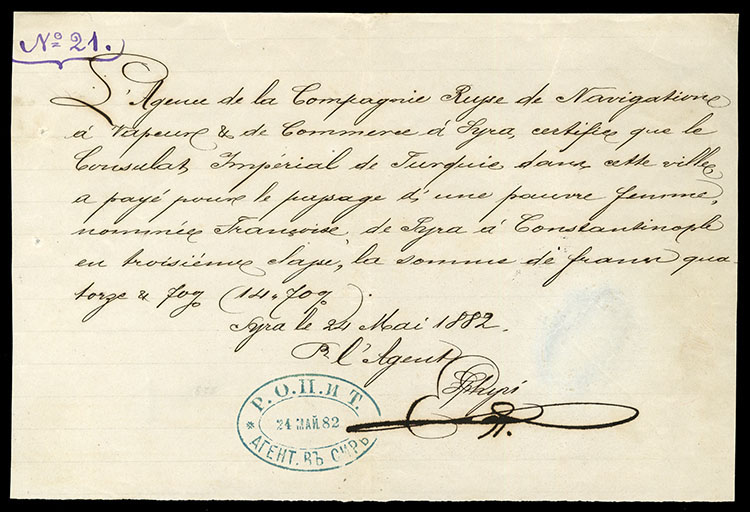 Nº 21.
L'Agence de la Compagnie Russe de Navigation
à Vapeur & de Commerce à Syra, certifie que le
Consulat Impérial de Turquie dans cette ville
a payé pour le passage d'une pauvre femme,
nommée Françoise, de Syra à Constantinople
en troisième , la somme de francs qua-
torze & 70% (14,70%).
Syra le 24 Mai 1882.
Pr l'Agent
Р.О.П.и Т.
24 МАЙ 82
АГЕНТ. ВЪ СИРѢ